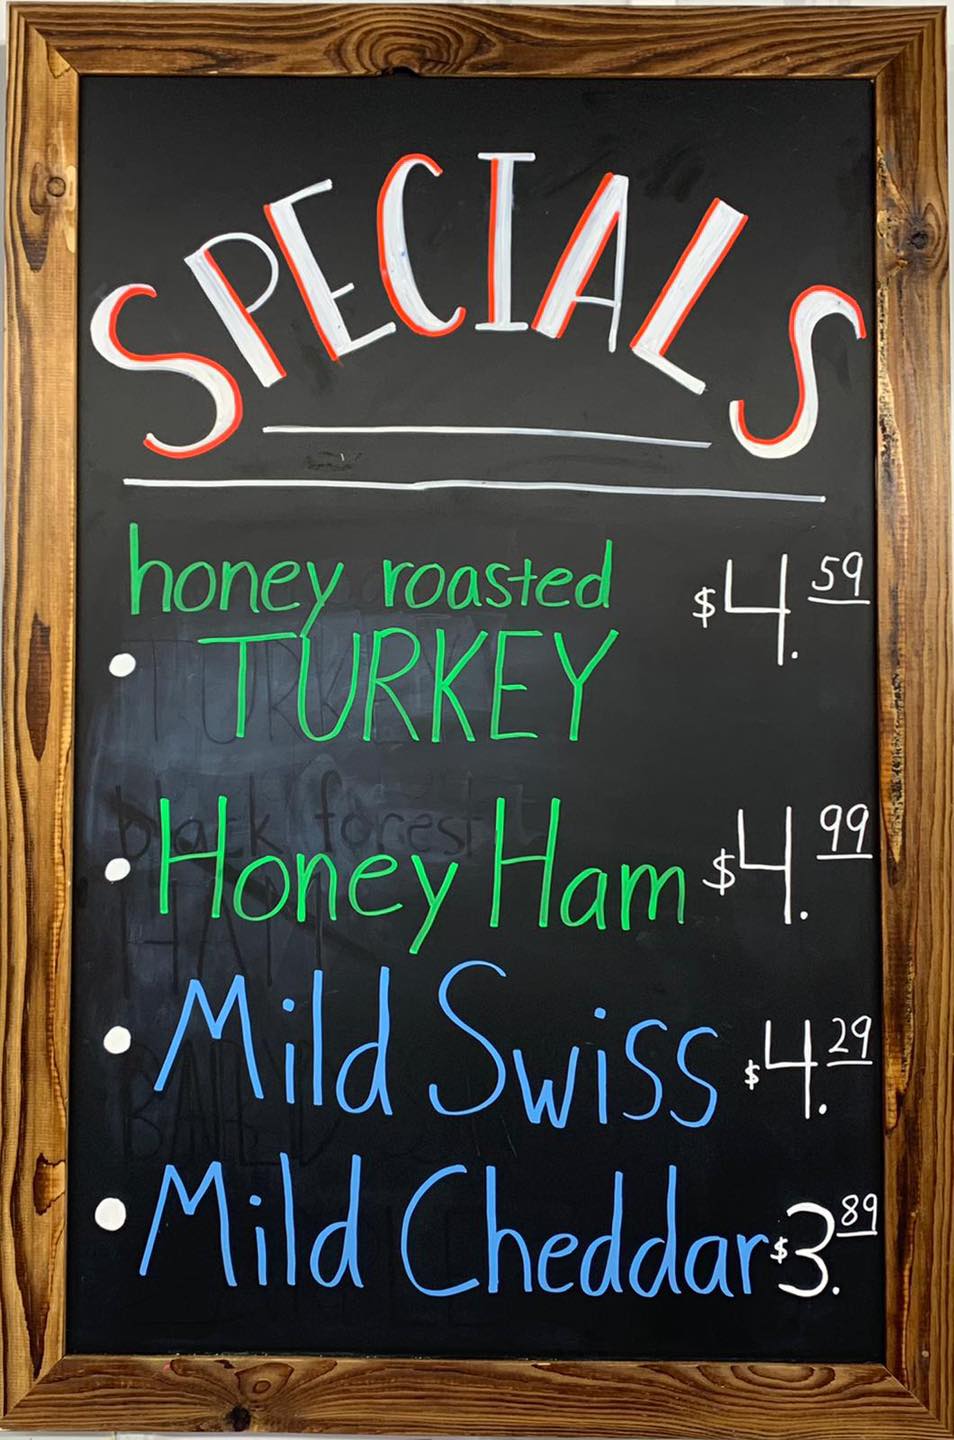 SPECIALS
honey roasted
• TURKEY $4.59
• Honey Ham $4.99
• Mild Swiss $4.29
• Mild Cheddar $3.89
black forest
HAM